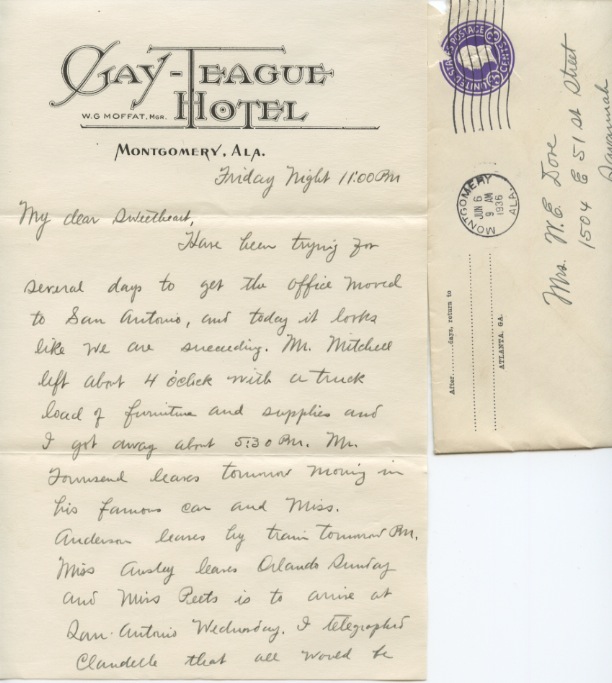 GAY-TEAGUE
HOTEL
W.G MOFFAT, MGR.
MONTGOMERY, ALA.
Friday Night 11:00 PM
My dear Sweetheart,
Have been trying for
several days to get the office moved
to San Antonio, and today it looks
like we are succeeding. Mr. Mitchell
left about 4 o'clock with a truck
load of furniture and supplies and
I got away about 5:30 PM. Mr.
Townsend leaves tomorrow morning in
his famous car and Miss.
Anderson leaves by train tomorrow PM.
Miss Ansley leaves Orlando Sunday
and Miss Peets is to arrive at
San Antonio Wednesday. I telegraphed
Claudelle that all would be
UNITED STATES POSTAGE
3 CENTS 3
MONTGOMERY
JUN 6
9 AM
1936
ALA.
Mrs. W. E. Dove
1504 E 51 st Street
Savannah
After........days, return to
ATLANTA, GA.